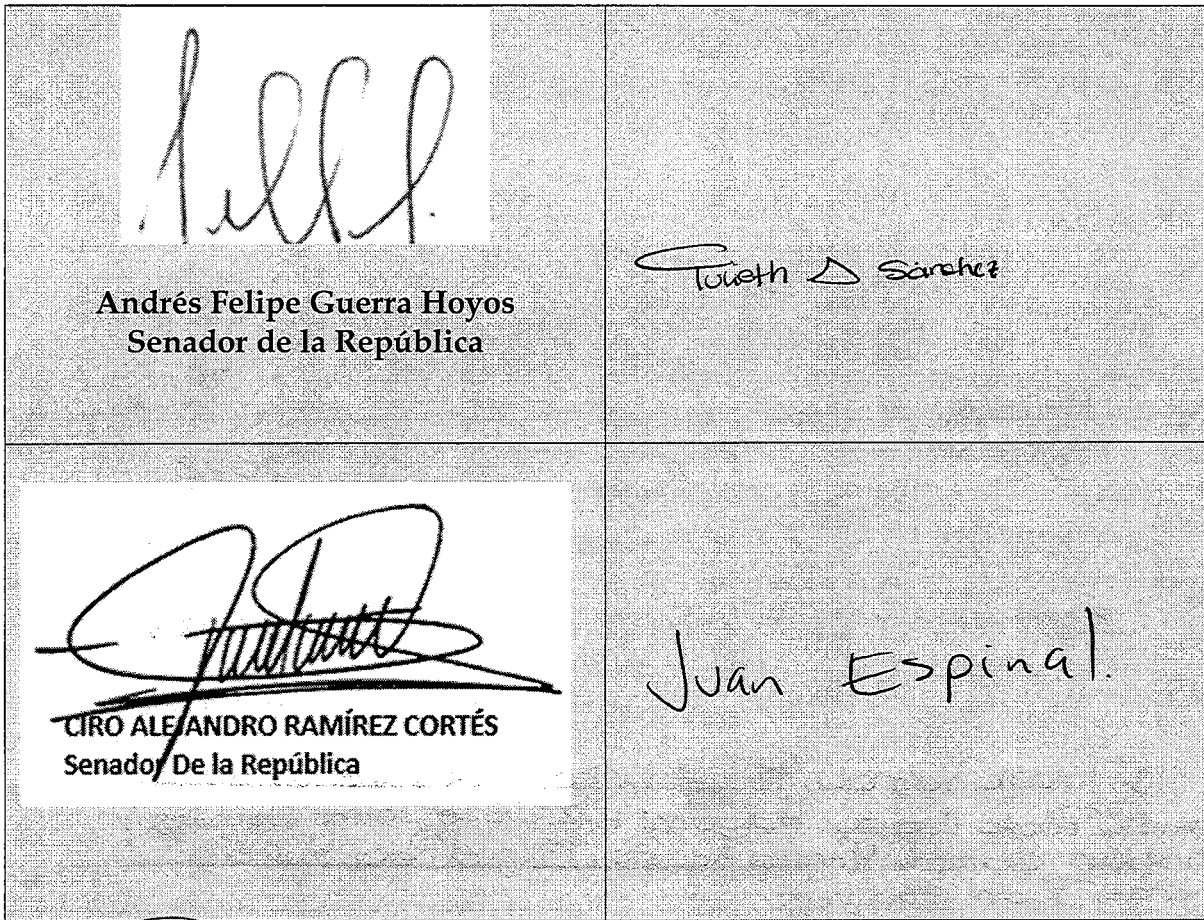 Andrés Felipe Guerra Hoyos
Senador de la República
Sánchez
CIRO ALEJANDRO RAMÍREZ CORTÉS
Senador De la República
Juan Espinal.